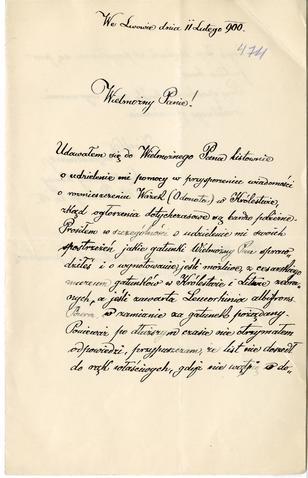 We Lwowie dnia 11 Lutego 900.
471
Wielmożny Panie!
Udawałem się do Wielmożnego Pana listownie
o udzielenie mi pomocy w przysporzeniu wiadomości
o rozmieszczeniu Ważek (Odonata) w Królestwie,
zkąd ogłoszenia dotychczasowe są bardzo pobieżne.
Prosiłem w szczególności o udzielenie mi swoich
spostrzeżeń jakie gatunki Wielmożny Pan spraw-
dziłeś i o wynotowanie, jeśli możliwe, z cesarskiego
muzeum gatunków w Królestwie i Litwie zebra-
nych, a jeśli zawarta Leucorhinia albifrons
w zamianie za gatunek pożądany.
Ponieważ po dłuższym czasie nie otrzymałem
odpowiedzi, przypuszczam, że list nie doszedł
do rąk właściwych, gdyż nie wątpię w do-